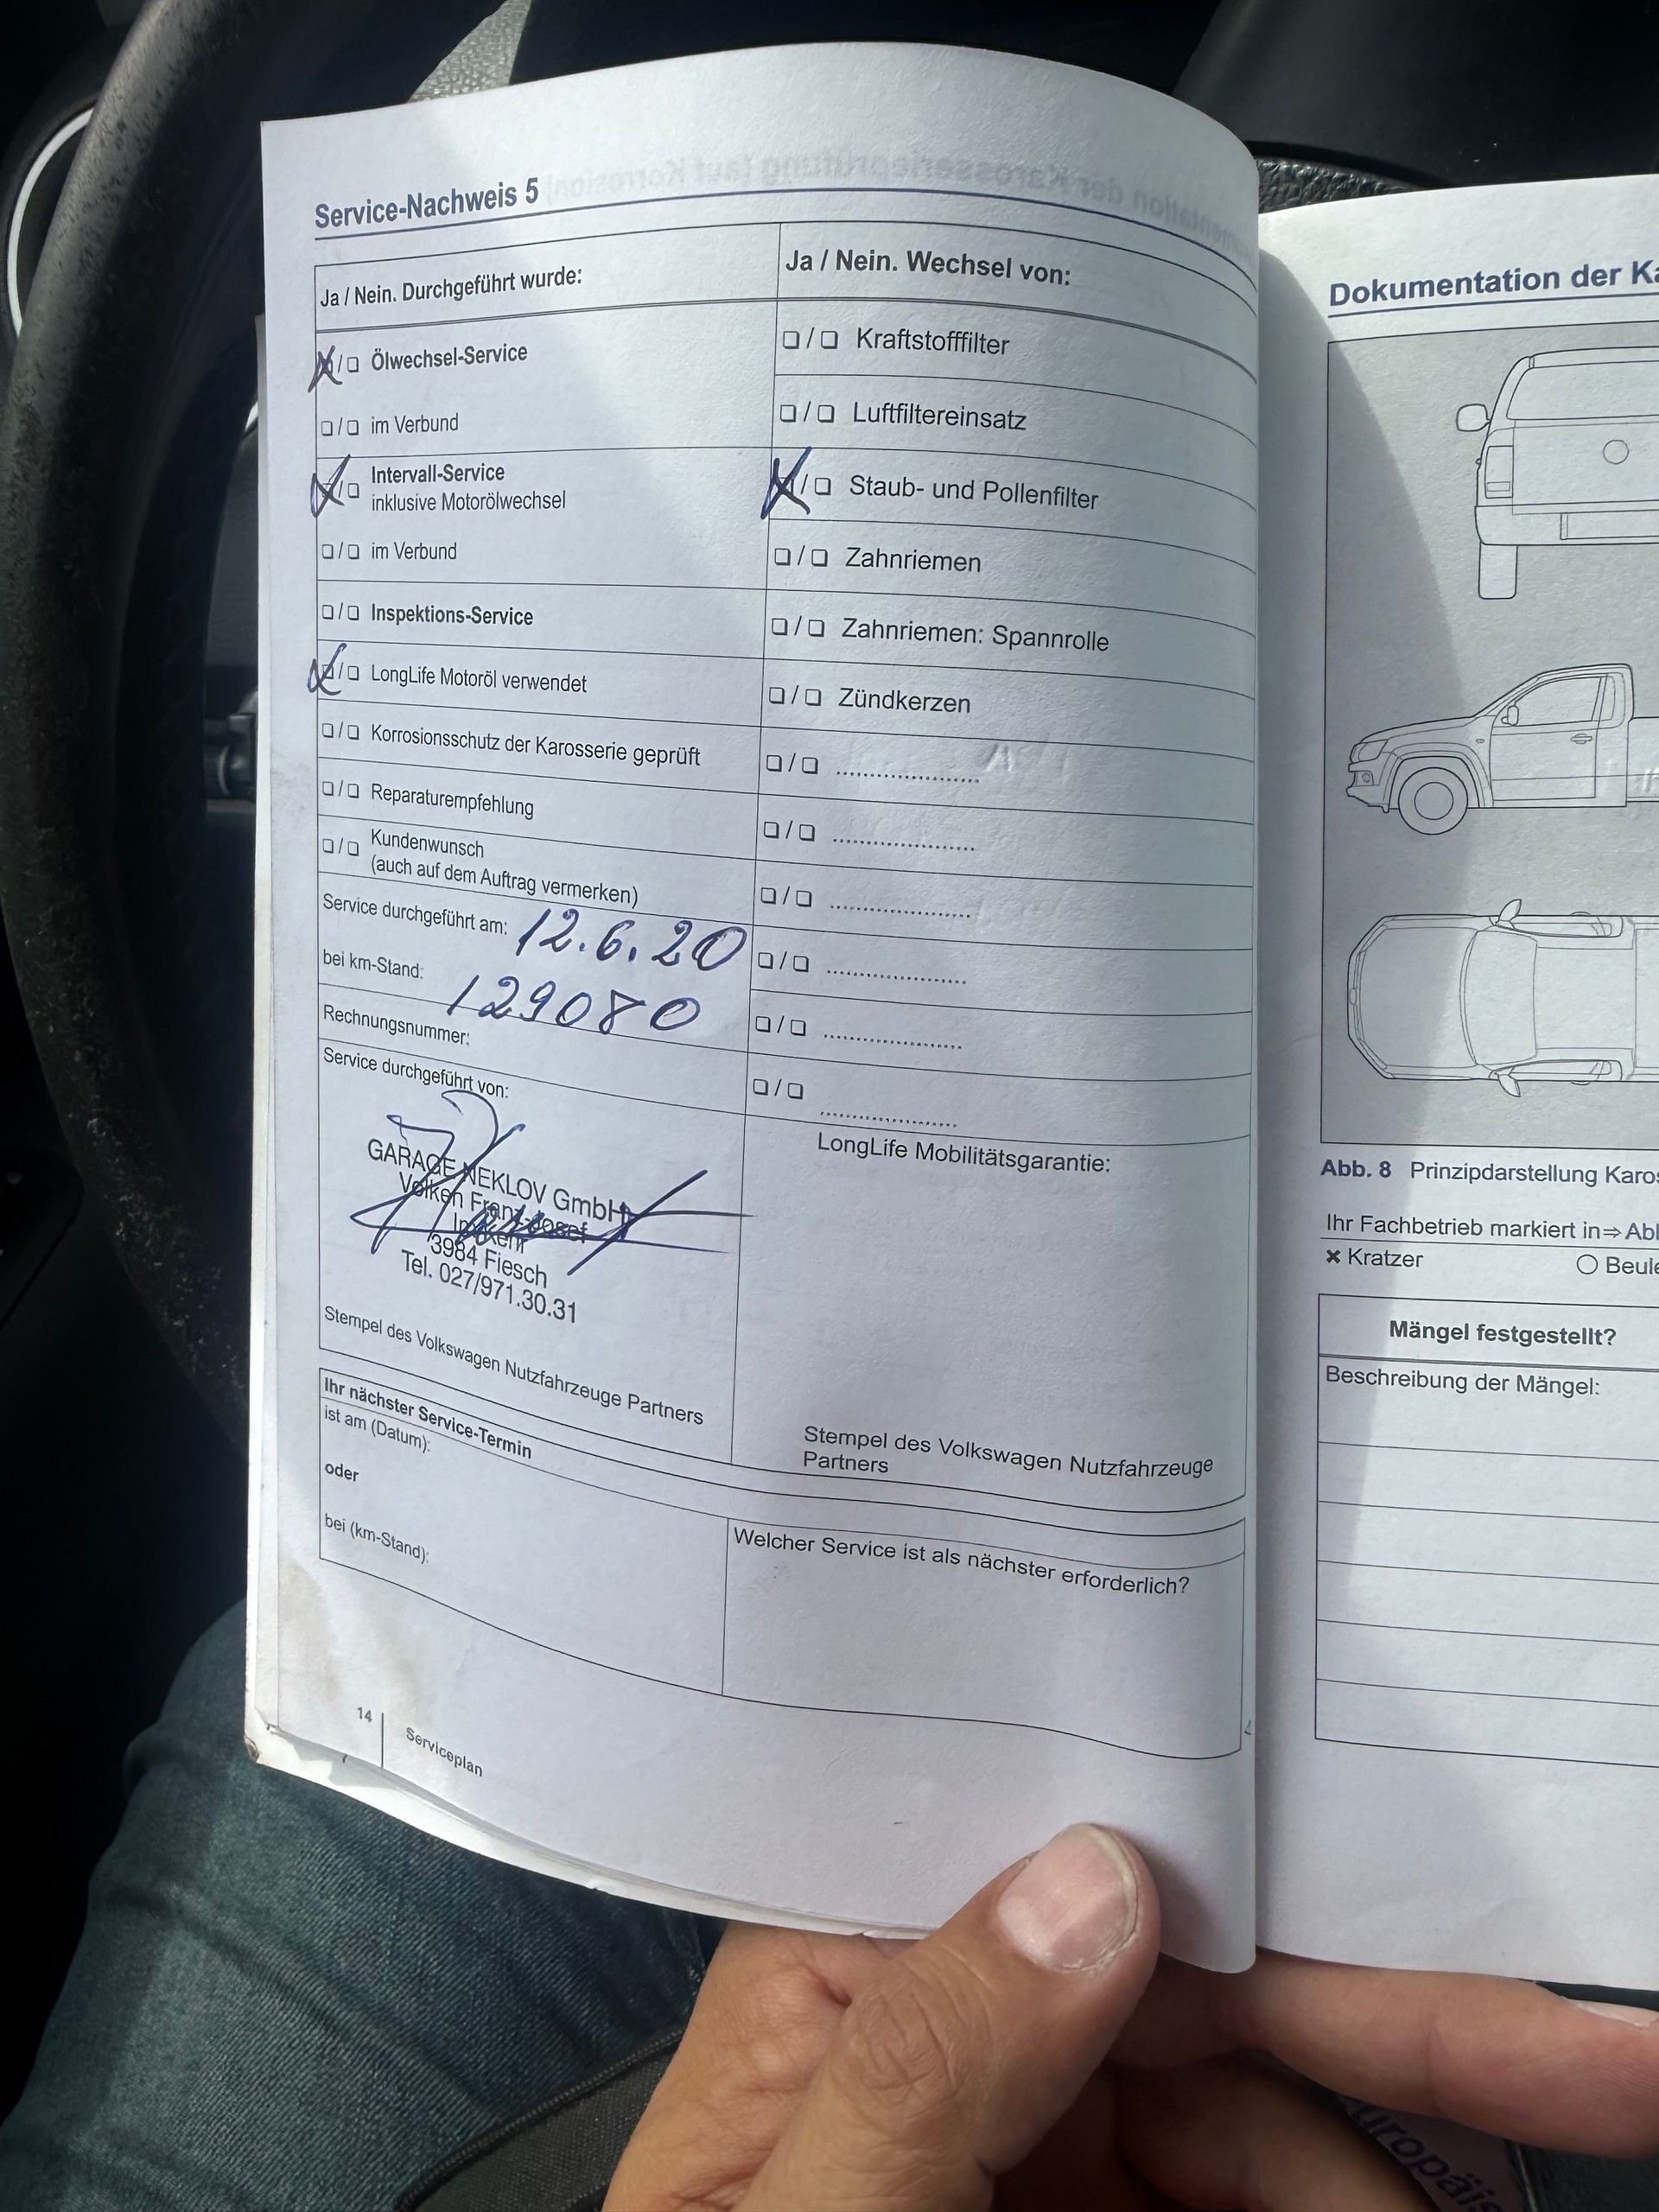 Service-Nachweis 5
Ja / Nein. Durchgeführt wurde:
Ölwechsel-Service
im Verbund
Intervall-Service
inklusive Motorölwechsel
im Verbund
Inspektions-Service
LongLife Motoröl verwendet
Korrosionsschutz der Karosserie geprüft
Reparaturempfehlung
Kundenwunsch
(auch auf dem Auftrag vermerken)
Service durchgeführt am: 12.6.20
bei km-Stand: 129080
Rechnungsnummer:
Service durchgeführt von:
GARAGE NEKLOV GmbH
Volken Franz-Josef
3984 Fiesch
Tel. 027/971.30.31
Stempel des Volkswagen Nutzfahrzeuge Partners
Ja / Nein. Wechsel von:
Kraftstofffilter
Luftfiltereinsatz
Staub- und Pollenfilter
Zahnriemen
Zahnriemen: Spannrolle
Zündkerzen
LongLife Mobilitätsgarantie:
Stempel des Volkswagen Nutzfahrzeuge
Partners
Ihr nächster Service-Termin
ist am (Datum):
oder
bei (km-Stand):
Welcher Service ist als nächster erforderlich?
14
Serviceplan
Dokumentation der Ka
Abb. 8 Prinzipdarstellung Karos
Ihr Fachbetrieb markiert in⇒Abb
Kratzer
Beule
Mängel festgestellt?
Beschreibung der Mängel: